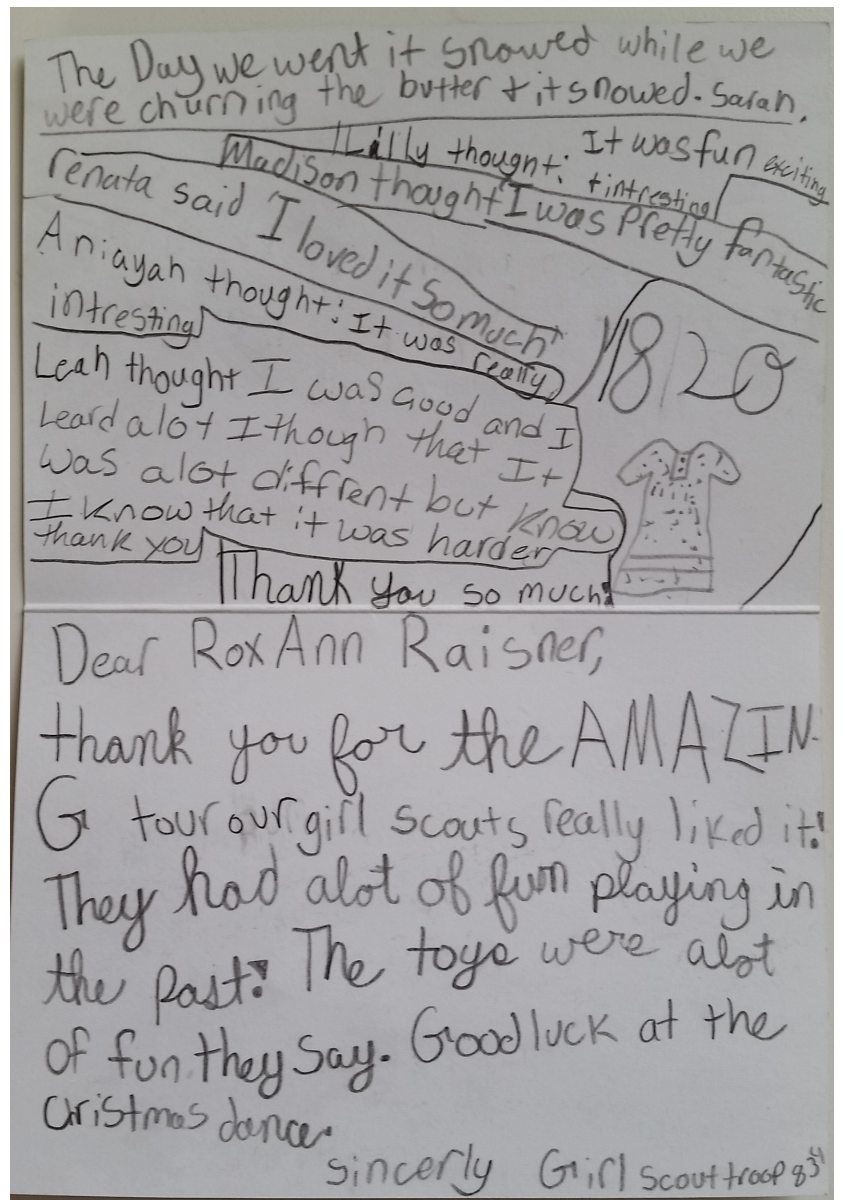 The Day we went it snowed while we
were churning the butter & it snowed. Sarah.
Lilly thought: It was fun exciting
& intresting
Madison thought I was Pretty fantastic
renata said I loved it so much
Aniayah thought: It was really
intresting
1820
Leah thought I was Good and I
Leard alot I though that It
was alot diffrent but know
I know that it was harder
thank you
Thank you so much!
Dear RoxAnn Raisner,
thank you for the AMAZIN-
G tour our girl scouts really liked it!
They had alot of fun playing in
the past! The toys were alot
of fun they say. Good luck at the
christmas dance.
sincerly Girl scout troop 834